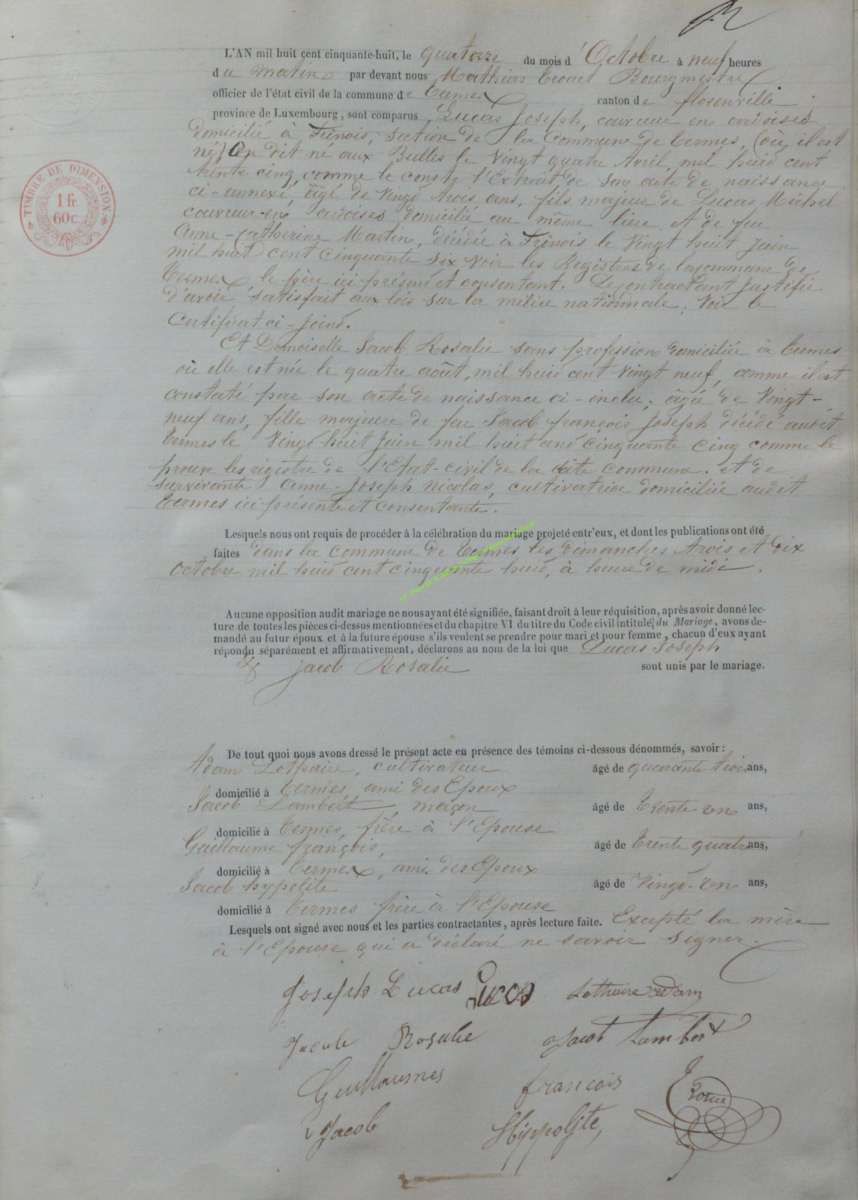 L'AN mil huit cent cinquante-huit, le quatorze du mois d'Octobre à neuf heures
du matin par devant nous Mathias Bourgmestre
officier de l'état civil de la commune de Termes canton de florenville
province de Luxembourg, sont comparus Lucas Joseph, couvreur en ardoises
domicilié à Frênois, section de la Commune de Termes, (où il est
né) On dit né aux Bulles le Vingt quatre Avril, mil huit cent
trente cinq, comme le conste l'Extrait de son acte de naissance
ci-annexé, âgé de Vingt trois ans, fils majeur de Lucas Michel
couvreur en ardoises domicilié au même lieu, et de feu
Anne-Catherine Martin, décédée à Frênois le Vingt huit Juin
mil huit cent cinquante six voir les Registres de la commune de
Termes, le père ici présent et consentant. Le contractant justifie
d'avoir satisfait aux lois sur la milice nationale, Voir le
Certificat ci-joint.
Et Demoiselle Jacob Rosalie sans profession domiciliée à Termes
où elle est née le quatre août, mil huit cent vingt neuf, comme il est
constaté par son acte de naissance ci-inclu, âgée de Vingt-
neuf ans, fille majeure de feu Jacob françois Joseph décédé audit
Termes le Vingt huit Juin mil huit cent cinquante cinq comme le
prouve les registre de l'Etat-civil de la dite commune. et de
survivante Anne-Joseph Nicolas, cultivatrice domiciliée audit
Termes ici présente et consentante.
Lesquels nous ont requis de procéder à la célébration du mariage projeté entr'eux, et dont les publications ont été
faites dans la commune de Termes les dimanches trois et dix
Octobre mil huit cent cinquante huit, à heure de midi.
Aucune opposition audit mariage ne nous ayant été signifiée, faisant droit à leur réquisition, après avoir donné lec-
ture de toutes les pièces ci-dessus mentionnées et du chapitre VI du titre du Code civil intitulé du Mariage, avons de-
mandé au futur époux et à la future épouse s'ils veulent se prendre pour mari et pour femme, chacun d'eux ayant
répondu séparément et affirmativement, déclarons au nom de la loi que Lucas Joseph
et Jacob Rosalie sont unis par le mariage.
De tout quoi nous avons dressé le présent acte en présence des témoins ci-dessous dénommés, savoir :
Adam Lothaire, cultivateur âgé de quarante trois ans,
domicilié à Termes, ami des Epoux
Jacob Lambert, maçon âgé de Trente un ans,
domicilié à Termes, frère à l'Epouse
Guillaume françois, âgé de Trente quatre ans,
domicilié à Termes, ami des Epoux
Jacob hypolite âgé de Vingt-un ans,
domicilié à Termes frère à l'Epouse
Lesquels ont signé avec nous et les parties contractantes, après lecture faite. Excepté la mère
à l'Epouse qui a déclaré ne savoir signer.
Joseph Lucas Lucas Lothaire Adam
Jacob Rosalie Jacob Lambert
Guillaumes françois
Jacob Hyppolite,
TIMBRE DE DIMENSION
1 fr
60 c.